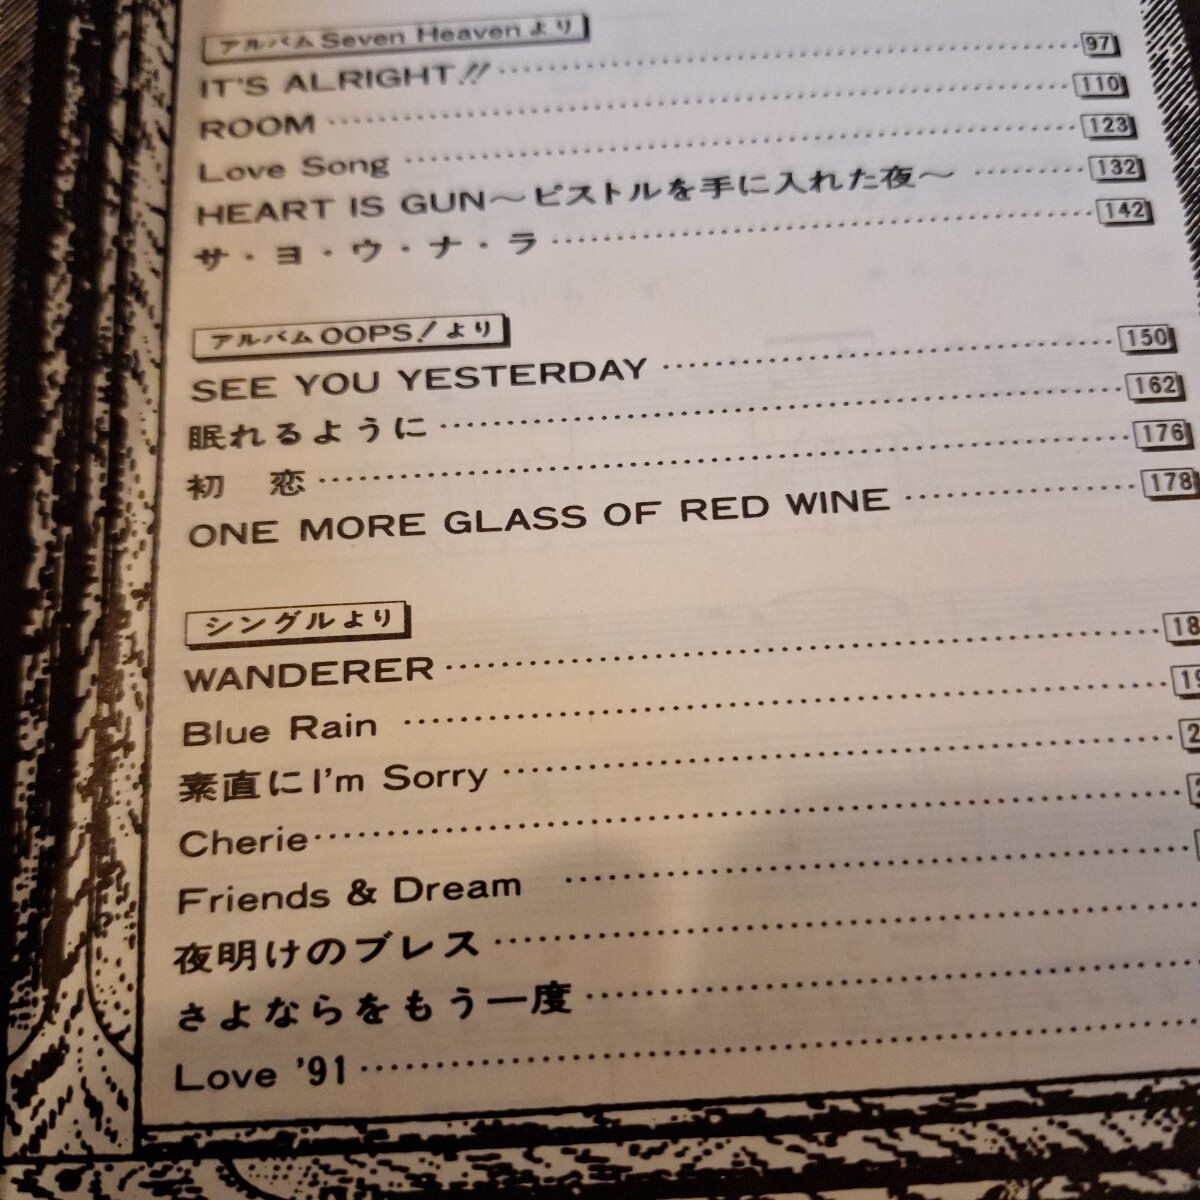 アルバムSeven Heavenより
IT'S ALRIGHT!! 97
ROOM 110
Love Song 123
HEART IS GUN～ピストルを手に入れた夜～ 132
サ・ヨ・ウ・ナ・ラ 142
アルバムOOPS!より
SEE YOU YESTERDAY 150
眠れるように 162
初 恋 176
ONE MORE GLASS OF RED WINE 178
シングルより
WANDERER
Blue Rain
素直にI'm Sorry
Cherie
Friends & Dream
夜明けのブレス
さよならをもう一度
Love '91